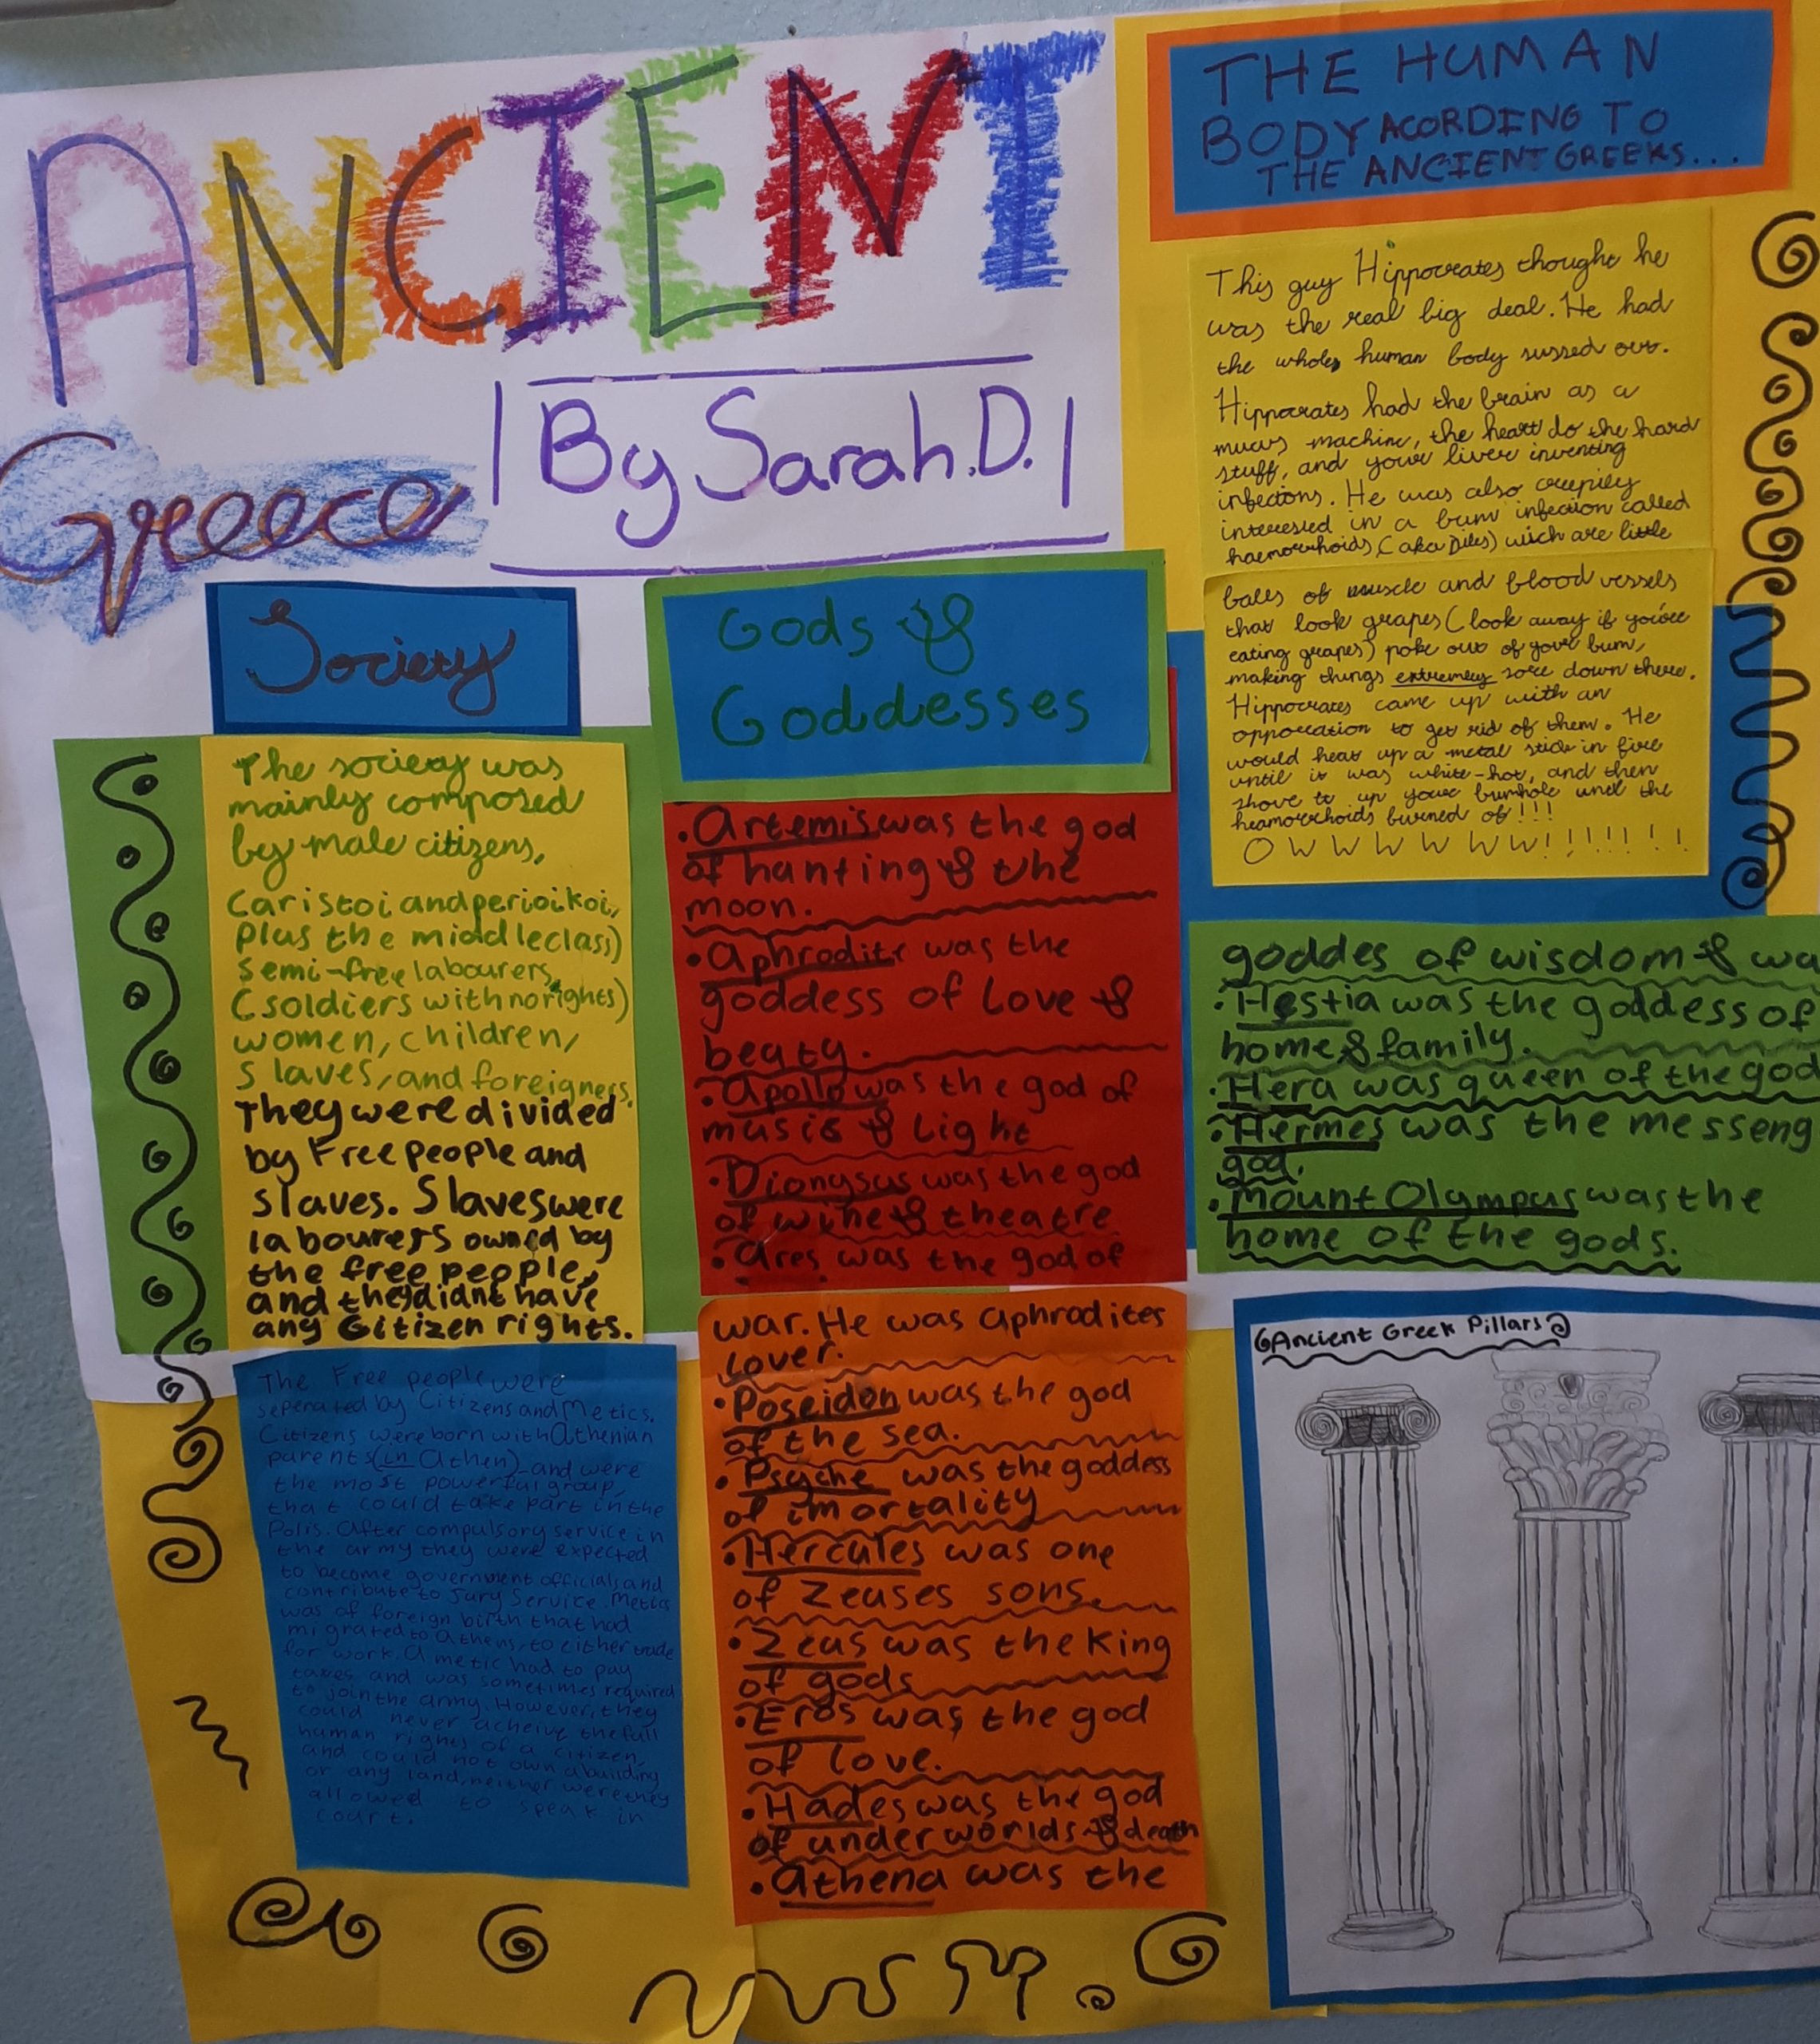 ANCIENT
Greece
|By Sarah.D.|
Society
The society was
mainly composed
by male citizens,
(aristoi and perioikoi,
plus the middleclass)
semi-free labourers,
(soldiers with no rights)
women, children,
slaves, and foreigners.
They were divided
by Free people and
slaves. Slaves were
labourers owned by
the free people,
and they didn't have
any Citizen rights.
The Free people were
seperated by Citizens and Metics.
Citizens were born with Athenian
parents (in Athen) and were
the most powerful group,
that could take part in the
Polis. After compulsory service in
the army they were expected
to become government officials and
contribute to Jury Service. Metics
was of foreign birth that had
migrated to Athens, to either trade
for work. A metic had to pay
taxes and was sometimes required
to join the army. However, they
could never acheive the full
human rights of a citizen,
and could not own a building
or any land, neither were they
allowed to speak in
court.
Gods &
Goddesses
• Artemis was the god
of hanting & the
moon.
• Aphrodite was the
goddess of Love &
beaty.
• Apollo was the god of
music & Light
• Dionysus was the god
of wine & theatre
• Ares was the god of
war. He was Aphrodites
Lover.
• Poseidon was the god
of the sea.
• Psyche was the goddess
of imortality
• Hercules was one
of Zeuses sons.
• Zeus was the King
of gods
• Eros was the god
of love.
• Hades was the god
of underworlds & death
• Athena was the
goddes of wisdom & wa
• Hestia was the goddess of
home & family.
• Hera was queen of the god
• Hermes was the messeng
god.
• Mount Olympus was the
home of the gods.
THE HUMAN
BODY ACORDING TO
THE ANCIENT GREEKS...
This guy Hippocrates thought he
was the real big deal. He had
the whole human body sussed out.
Hippocrates had the brain as a
mucus machine, the heart do the hard
stuff, and your liver inventing
infections. He was also creepily
interested in a bum infection called
haemorrhoids, (aka piles) wich are little
balls of muscle and blood vessels
that look grapes (look away if you're
eating grapes) poke out of your bum,
making things extremely sore down there.
Hippocrates came up with an
opporcation to get rid of them. He
would heat up a metal stick in fire
until it was white-hot, and then
shove to up your bumhole until the
heamorrhoids burned of!!!
OWWWWWW!!!!!!!
Ancient Greek Pillars